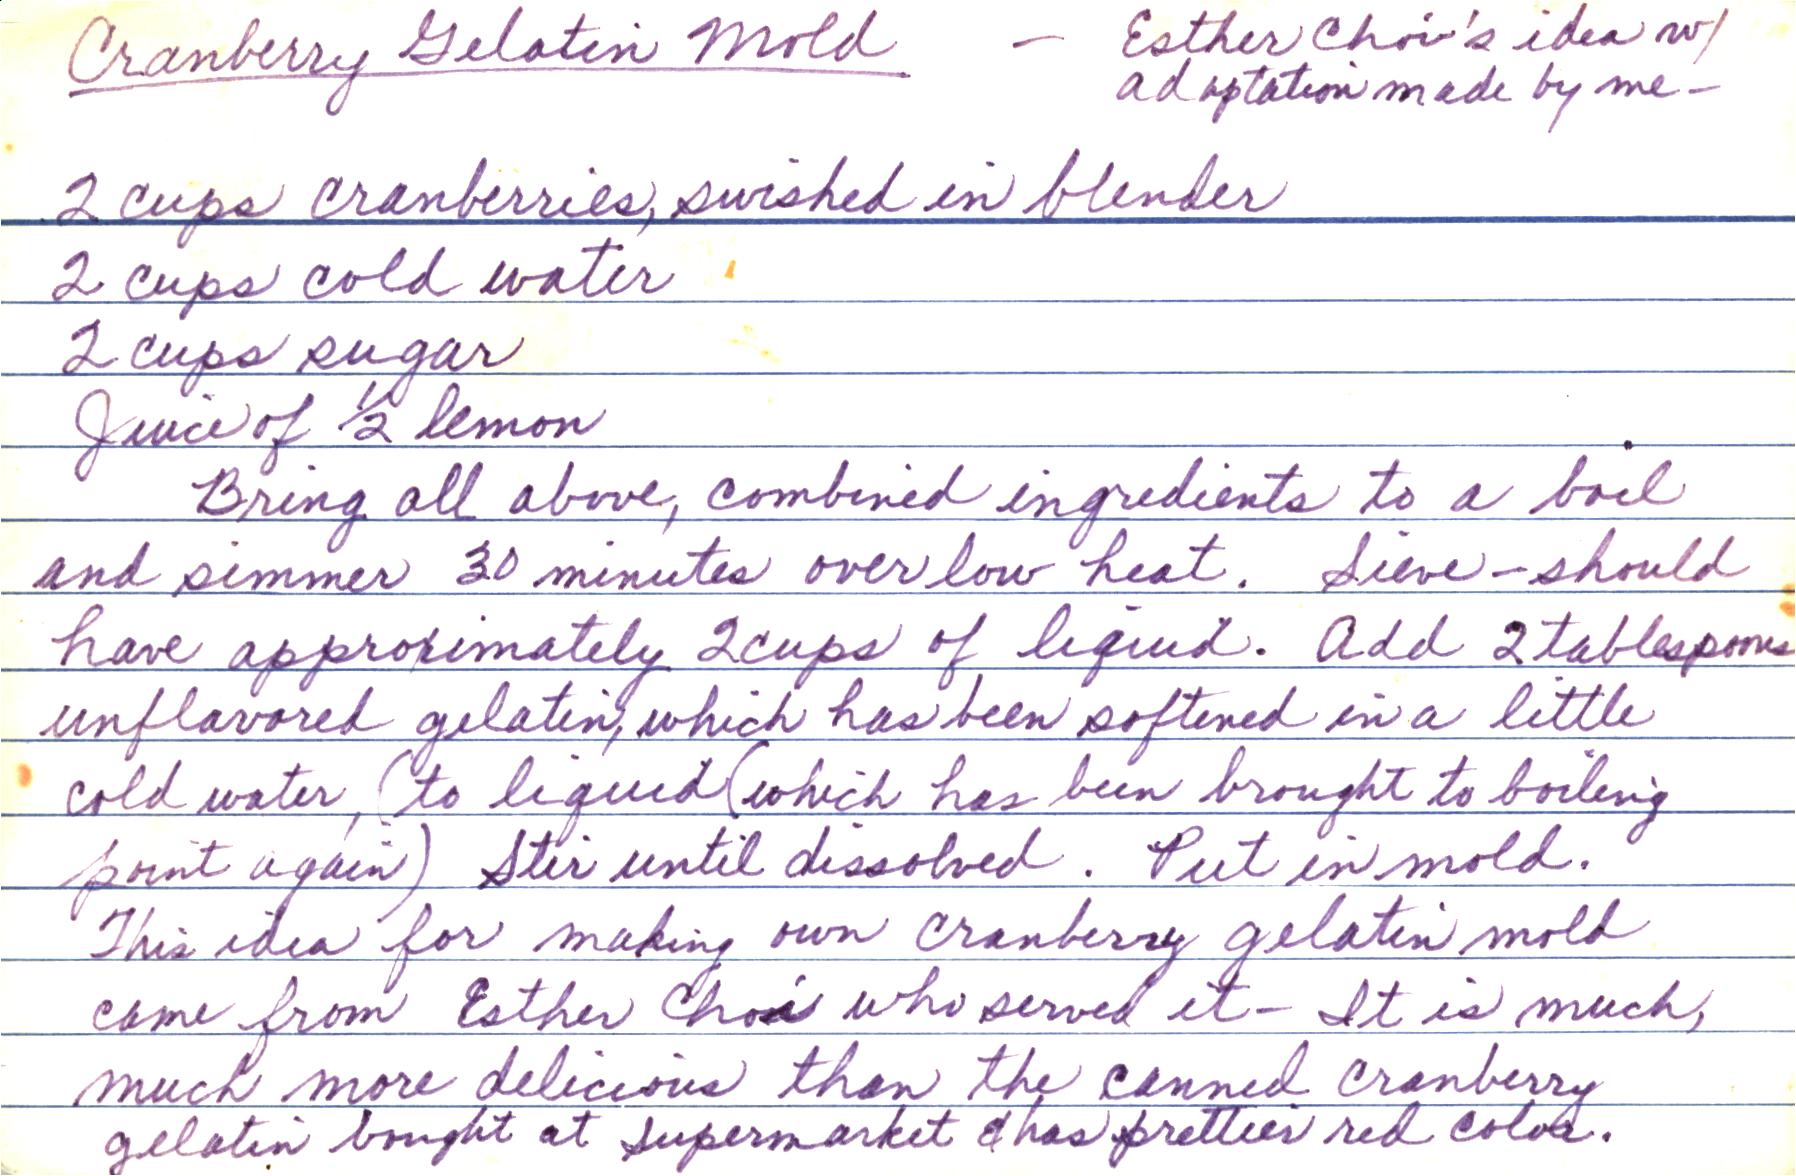 Cranberry Gelatin Mold — Esther Choi's idea w/
adaptation made by me —
2 cups cranberries, swished in blender
2 cups cold water
2 cups sugar
Juice of 1/2 lemon
Bring all above, combined ingredients to a boil
and simmer 30 minutes over low heat. Sieve - should
have approximately 2 cups of liquid. Add 2 tablespoons
unflavored gelatin, which has been softened in a little
cold water, (to liquid (which has been brought to boiling
point again) Stir until dissolved. Put in mold.
This idea for making own cranberry gelatin mold
came from Esther Choi who served it - It is much,
much more delicious than the canned cranberry
gelatin bought at supermarket & has prettier red color.